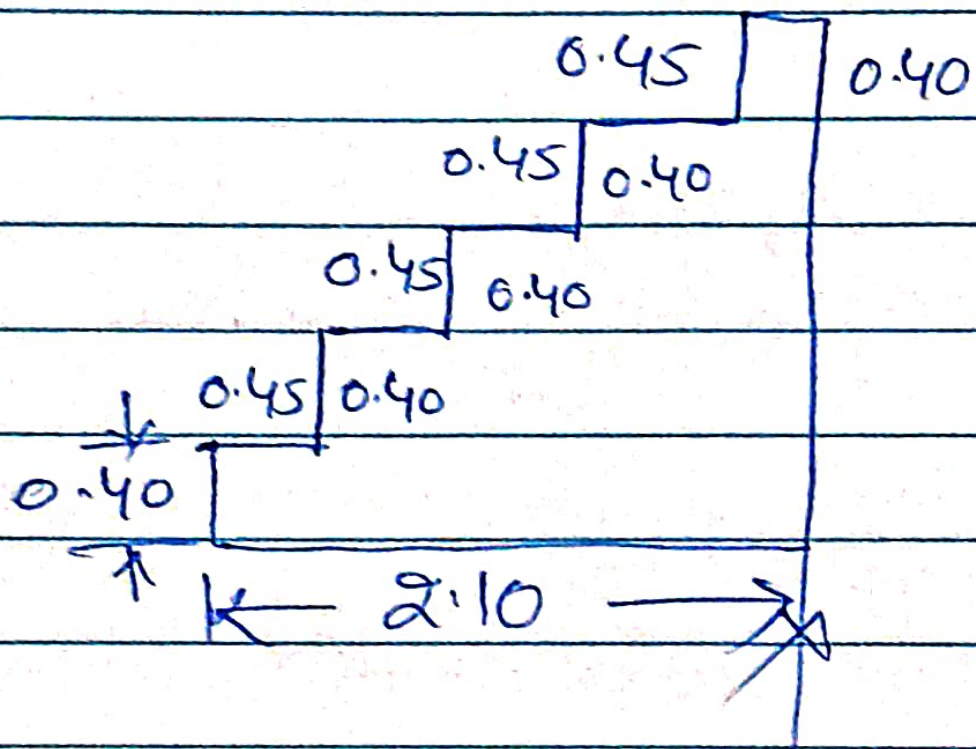 0.45 0.40
0.45 0.40
0.45 0.40
0.45 0.40
0.40
2.10